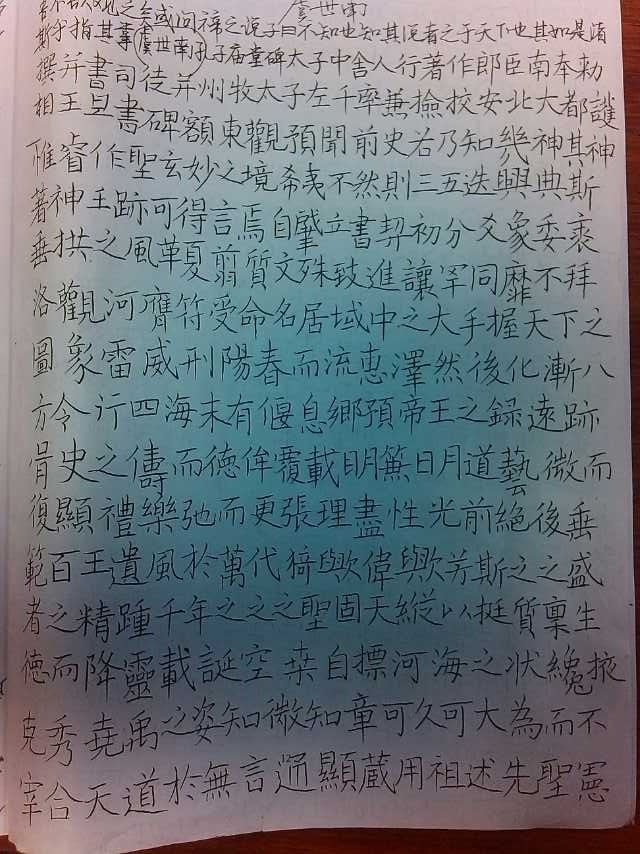 虞世南
或问禘之说子曰不知也知其说者之于天下也其如是诸
斯乎指其掌虞世南孔子庙堂碑太子中舍人行著作郎臣南奉勅
撰并書司徒并州牧太子左千率兼撿挍安北大都護
相王旦書碑額東觀預聞前史若乃知幾神其神
惟睿作聖玄妙之境希夷不然則三五迭興典斯
著神王跡可得言焉自肇立書契初分爻象委裘
垂拱之風革夏翦質文殊致進讓罕同靡不拜
洛觀河膺符受命名居域中之大手握天下之
圖象雷威刑陽春而流惠澤然後化漸八
方令行四海未有偃息鄉預帝王之録遠跡
胥史之儔而德侔覆載明篤日月道藝微而
復顯禮樂弛而更張理盡性光前絶後垂
範百王遺風於萬代猗歟偉歟若斯之之盛
者之精踵千年之之之聖固天縱以挺質稟生
德而降靈載誕空桒自摽河海之状纔掖
克秀堯禹之姿知微知章可久可大為而不
宰合天道於無言通顯蔵用祖述先聖憲